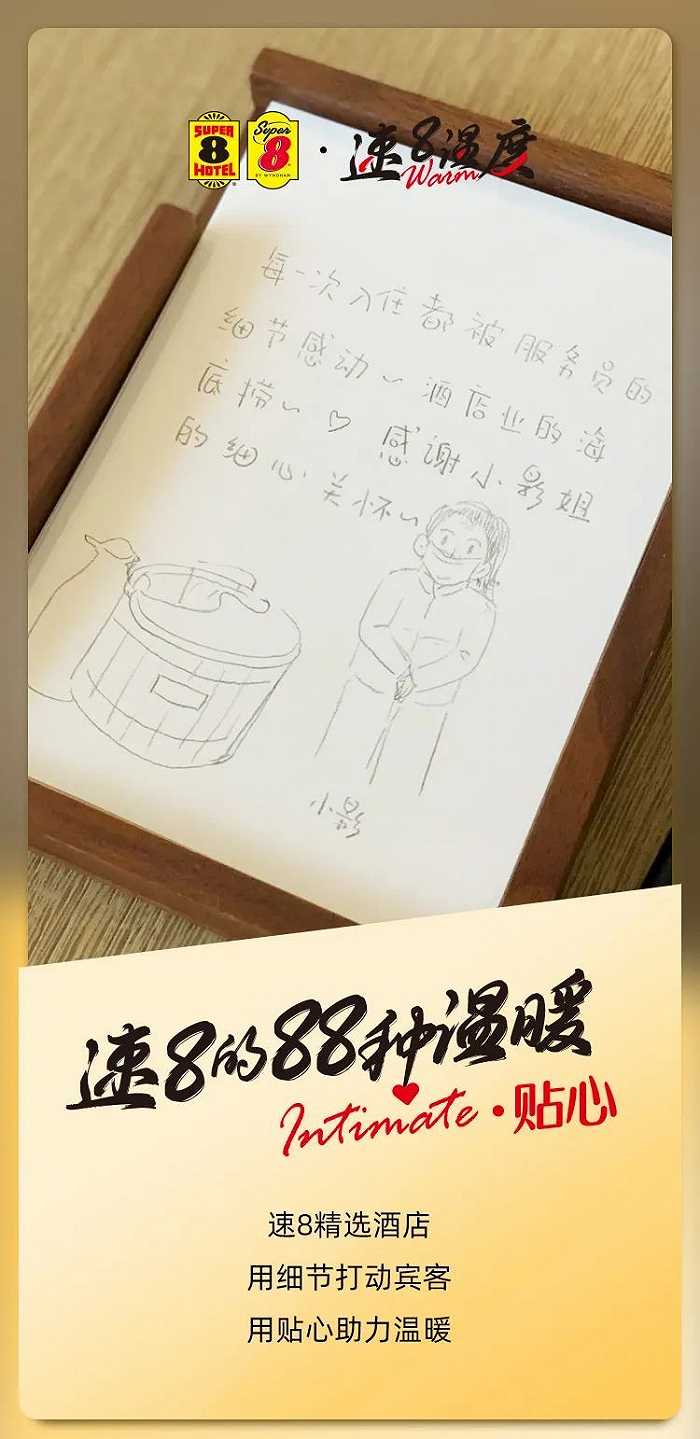 SUPER 8 HOTEL
Super 8 BY WYNDHAM
·速8温度
Warm
每一次入住都被服务员的
细节感动~酒店业的海
底捞~♡ 感谢小影姐
的细心关怀~
小影
速8的88种温暖
Intimate·贴心
速8精选酒店
用细节打动宾客
用贴心助力温暖